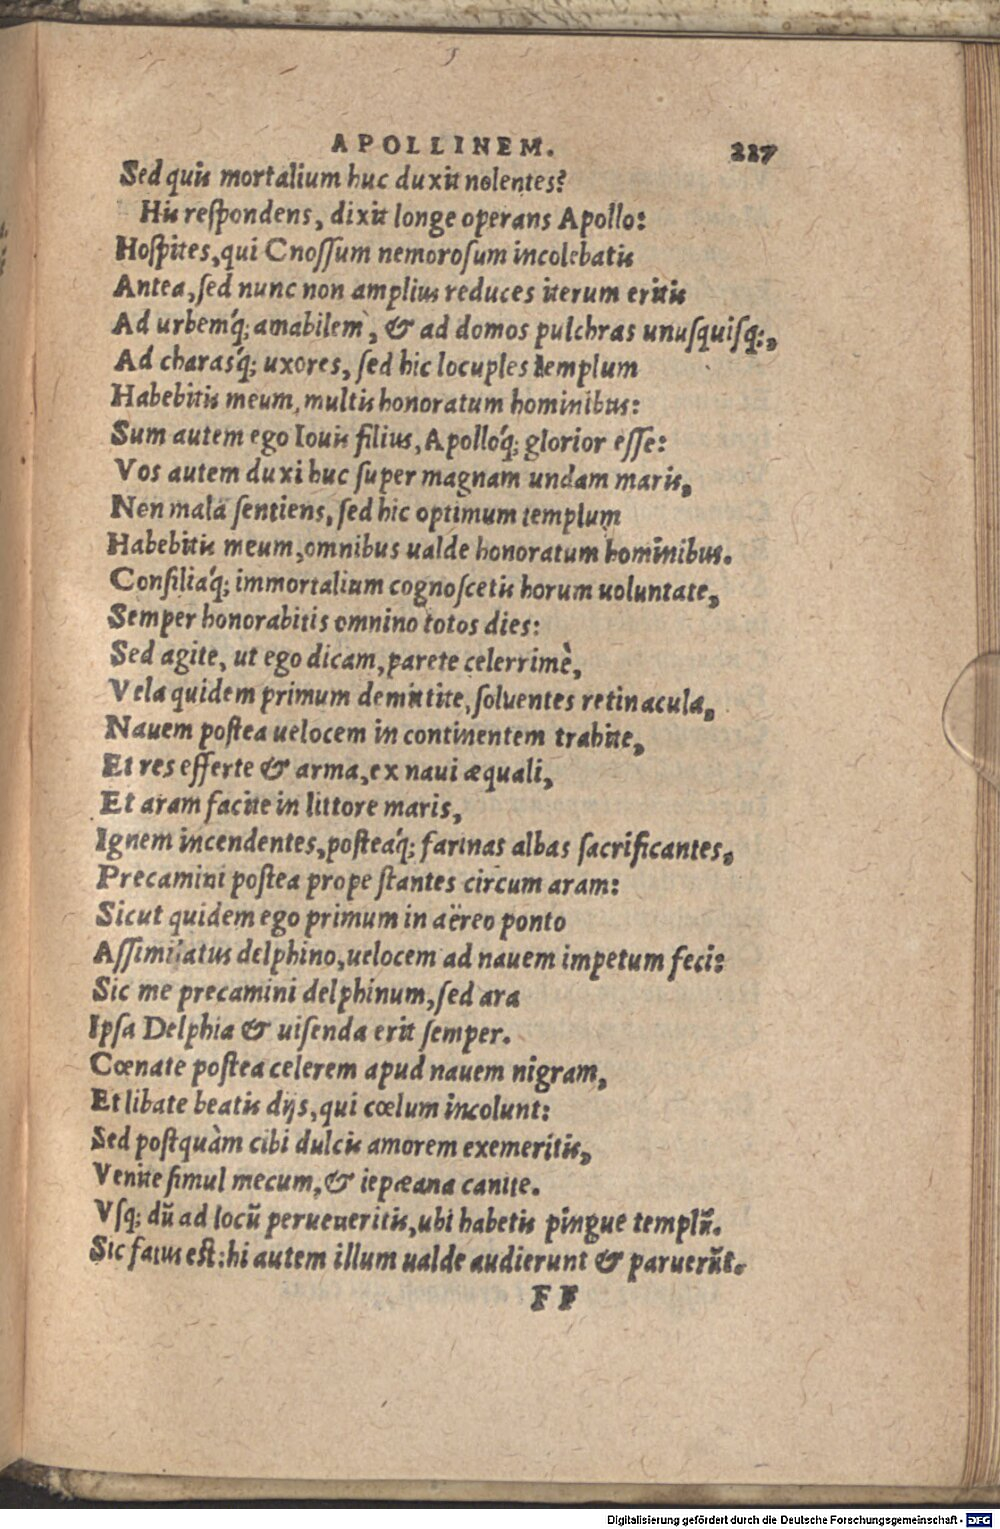 APOLLINEM. 227
Sed quis mortalium huc duxit nolentes?
His respondens, dixit longe operans Apollo:
Hospites, qui Cnossum nemorosum incolebatis
Antea, sed nunc non amplius reduces iterum eritis
Ad urbemq́; amabilem, & ad domos pulchras unusquisq;,
Ad charasq́; uxores, sed hic locuples templum
Habebitis meum, multis honoratum hominibus:
Sum autem ego Iouis filius, Apolloq́; glorior esse:
Vos autem duxi huc super magnam undam maris,
Non mala sentiens, sed hic optimum templum
Habebitis meum, omnibus ualde honoratum hominibus.
Consiliaq́; immortalium cognoscetis horum uoluntate,
Semper honorabitis omnino totos dies:
Sed agite, ut ego dicam, parete celerrimè,
Vela quidem primum demittite, soluentes retinacula,
Nauem postea uelocem in continentem trahite,
Et res efferte & arma, ex naui æquali,
Et aram facite in littore maris,
Ignem incendentes, posteaq́; farinas albas sacrificantes,
Precamini postea prope stantes circum aram:
Sicut quidem ego primum in aëreo ponto
Assimilatus delphino, uelocem ad nauem impetum feci:
Sic me precamini delphinum, sed ara
Ipsa Delphia & uisenda erit semper.
Cœnate postea celerem apud nauem nigram,
Et libate beatis dijs, qui cœlum incolunt:
Sed postquàm cibi dulcis amorem exemeritis,
Venite simul mecum, & iepæana canite.
Vsq; dū ad locū perueueritis, ubi habetis pingue templū.
Sic fatus est: hi autem illum ualde audierunt & paruerūt.
FF
Digitalisierung gefördert durch die Deutsche Forschungsgemeinschaft - DFG